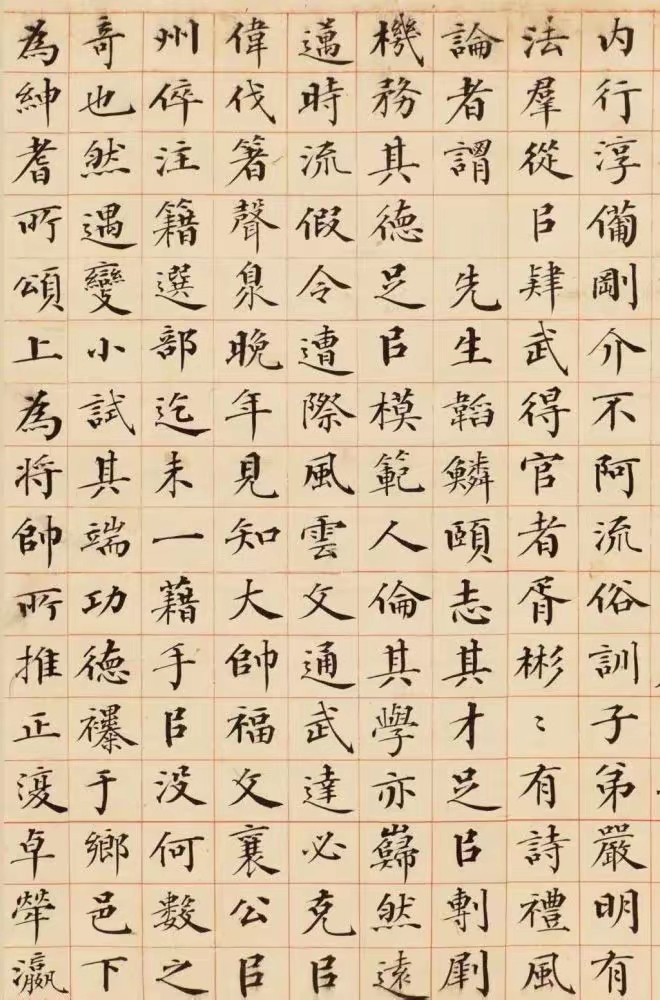 内行淳備剛介不阿流俗訓子弟嚴明有
法羣從㠯肆武得官者胥彬〻有詩禮風
論者謂 先生韜鱗頤志其才足㠯剸
機務其德足㠯模範人倫其學亦巋然遠
邁時流假令遭際風雲文通武達必克㠯
偉伐箸聲臮晚年見知大帥福文襄公㠯
州倅注籍選部迄未一藉手㠯没何數之
奇也然遇變小試其端功德襮于鄉邑下
為紳耆所頌上為將帥所推正復卓犖瀛